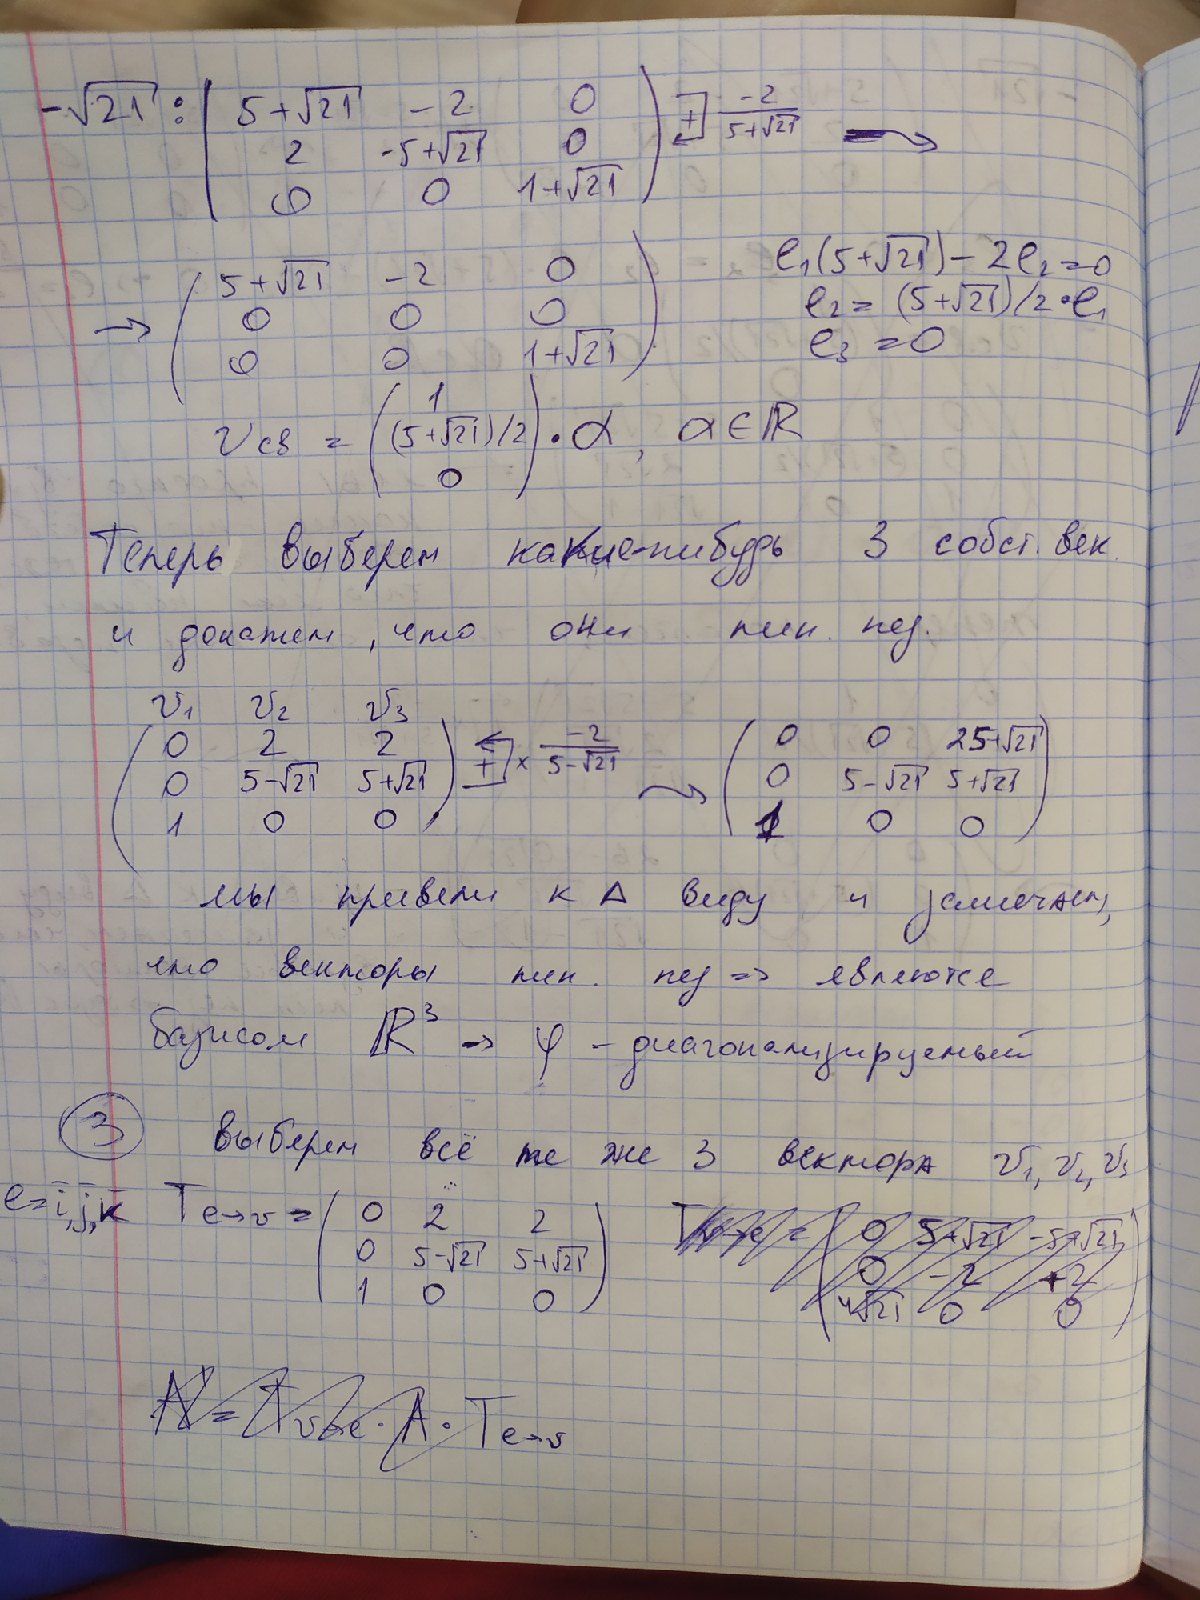 -√21 : ( 5+√21 -2 0 ) [+] -2/(5+√21)
2 -5+√21 0
0 0 1+√21
→ ( 5+√21 -2 0 )
0 0 0
0 0 1+√21
e₁(5+√21) - 2e₂ = 0
e₂ = (5+√21)/2 · e₁
e₃ = 0
v св = ( 1 (5+√21)/2 0 ) · α, α ∈ ℝ
Теперь выберем какие-нибудь 3 собст. век.
и докажем, что они лин. нез.
v₁ v₂ v₃
( 0 2 2 ) [+] × -2/(5-√21) → ( 0 0 25+√21 )
0 5-√21 5+√21 0 5-√21 5+√21
1 0 0 1 0 0
мы привели к Δ виду и замечаем,
что векторы лин. нез => являются
базисом ℝ³ → φ - диагонализируемый
③ выберем всё те же 3 вектора v₁, v₂, v₃
e = i, j, k T e→v = ( 0 2 2 )
0 5-√21 5+√21
1 0 0
0 5+√21 -5+√21
0 -2 +2
4√21 0 0
A' = T v→e · A · T e→v